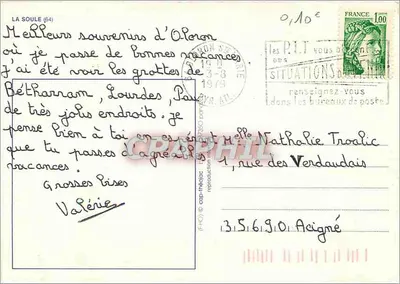 LA SOULE (64)
0,10€
Meilleurs souvenirs d'Oloron
où je passe de bonnes vacances
J'ai été voir les grottes de
Bétharram, Lourdes, Pau
de très jolis endroits. je
pense bien à toi en espérant
que tu passes d'agréables
vacances.
Grosses bises
Valérie
18 H
3-8
1979
PYR ATL.
les P.T.T vous offrent
des
SITUATIONS
renseignez-vous
dans les bureaux de poste
FRANCE
1,00
Melle Nathalie Troalic
1, rue des Verdaudais
35690 Acigné
CPAPHIL